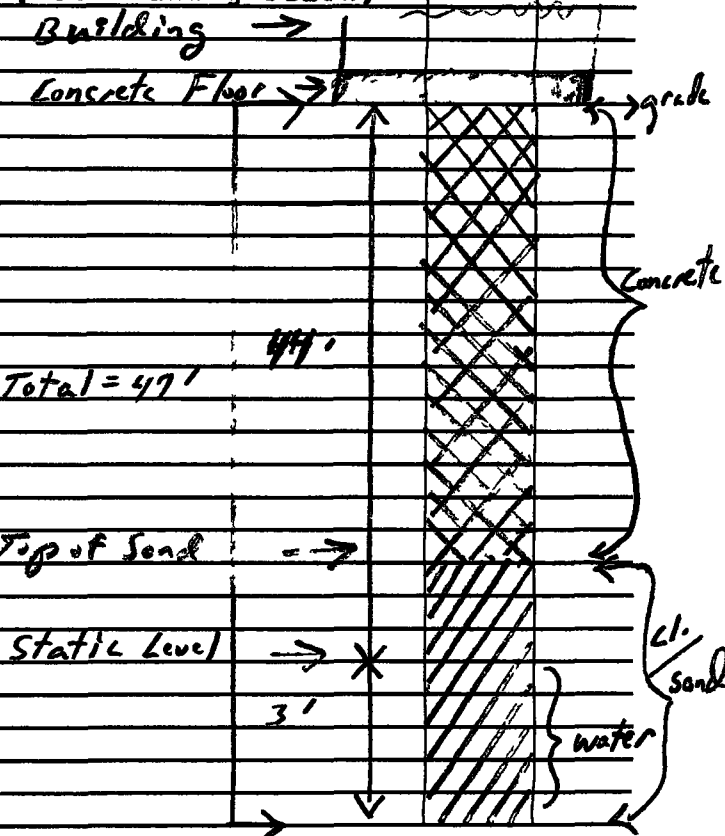 Building
Concrete Floor
grade
Concrete
44'
Total = 47'
Top of Sand
Static Level
cl.
sand
3'
water